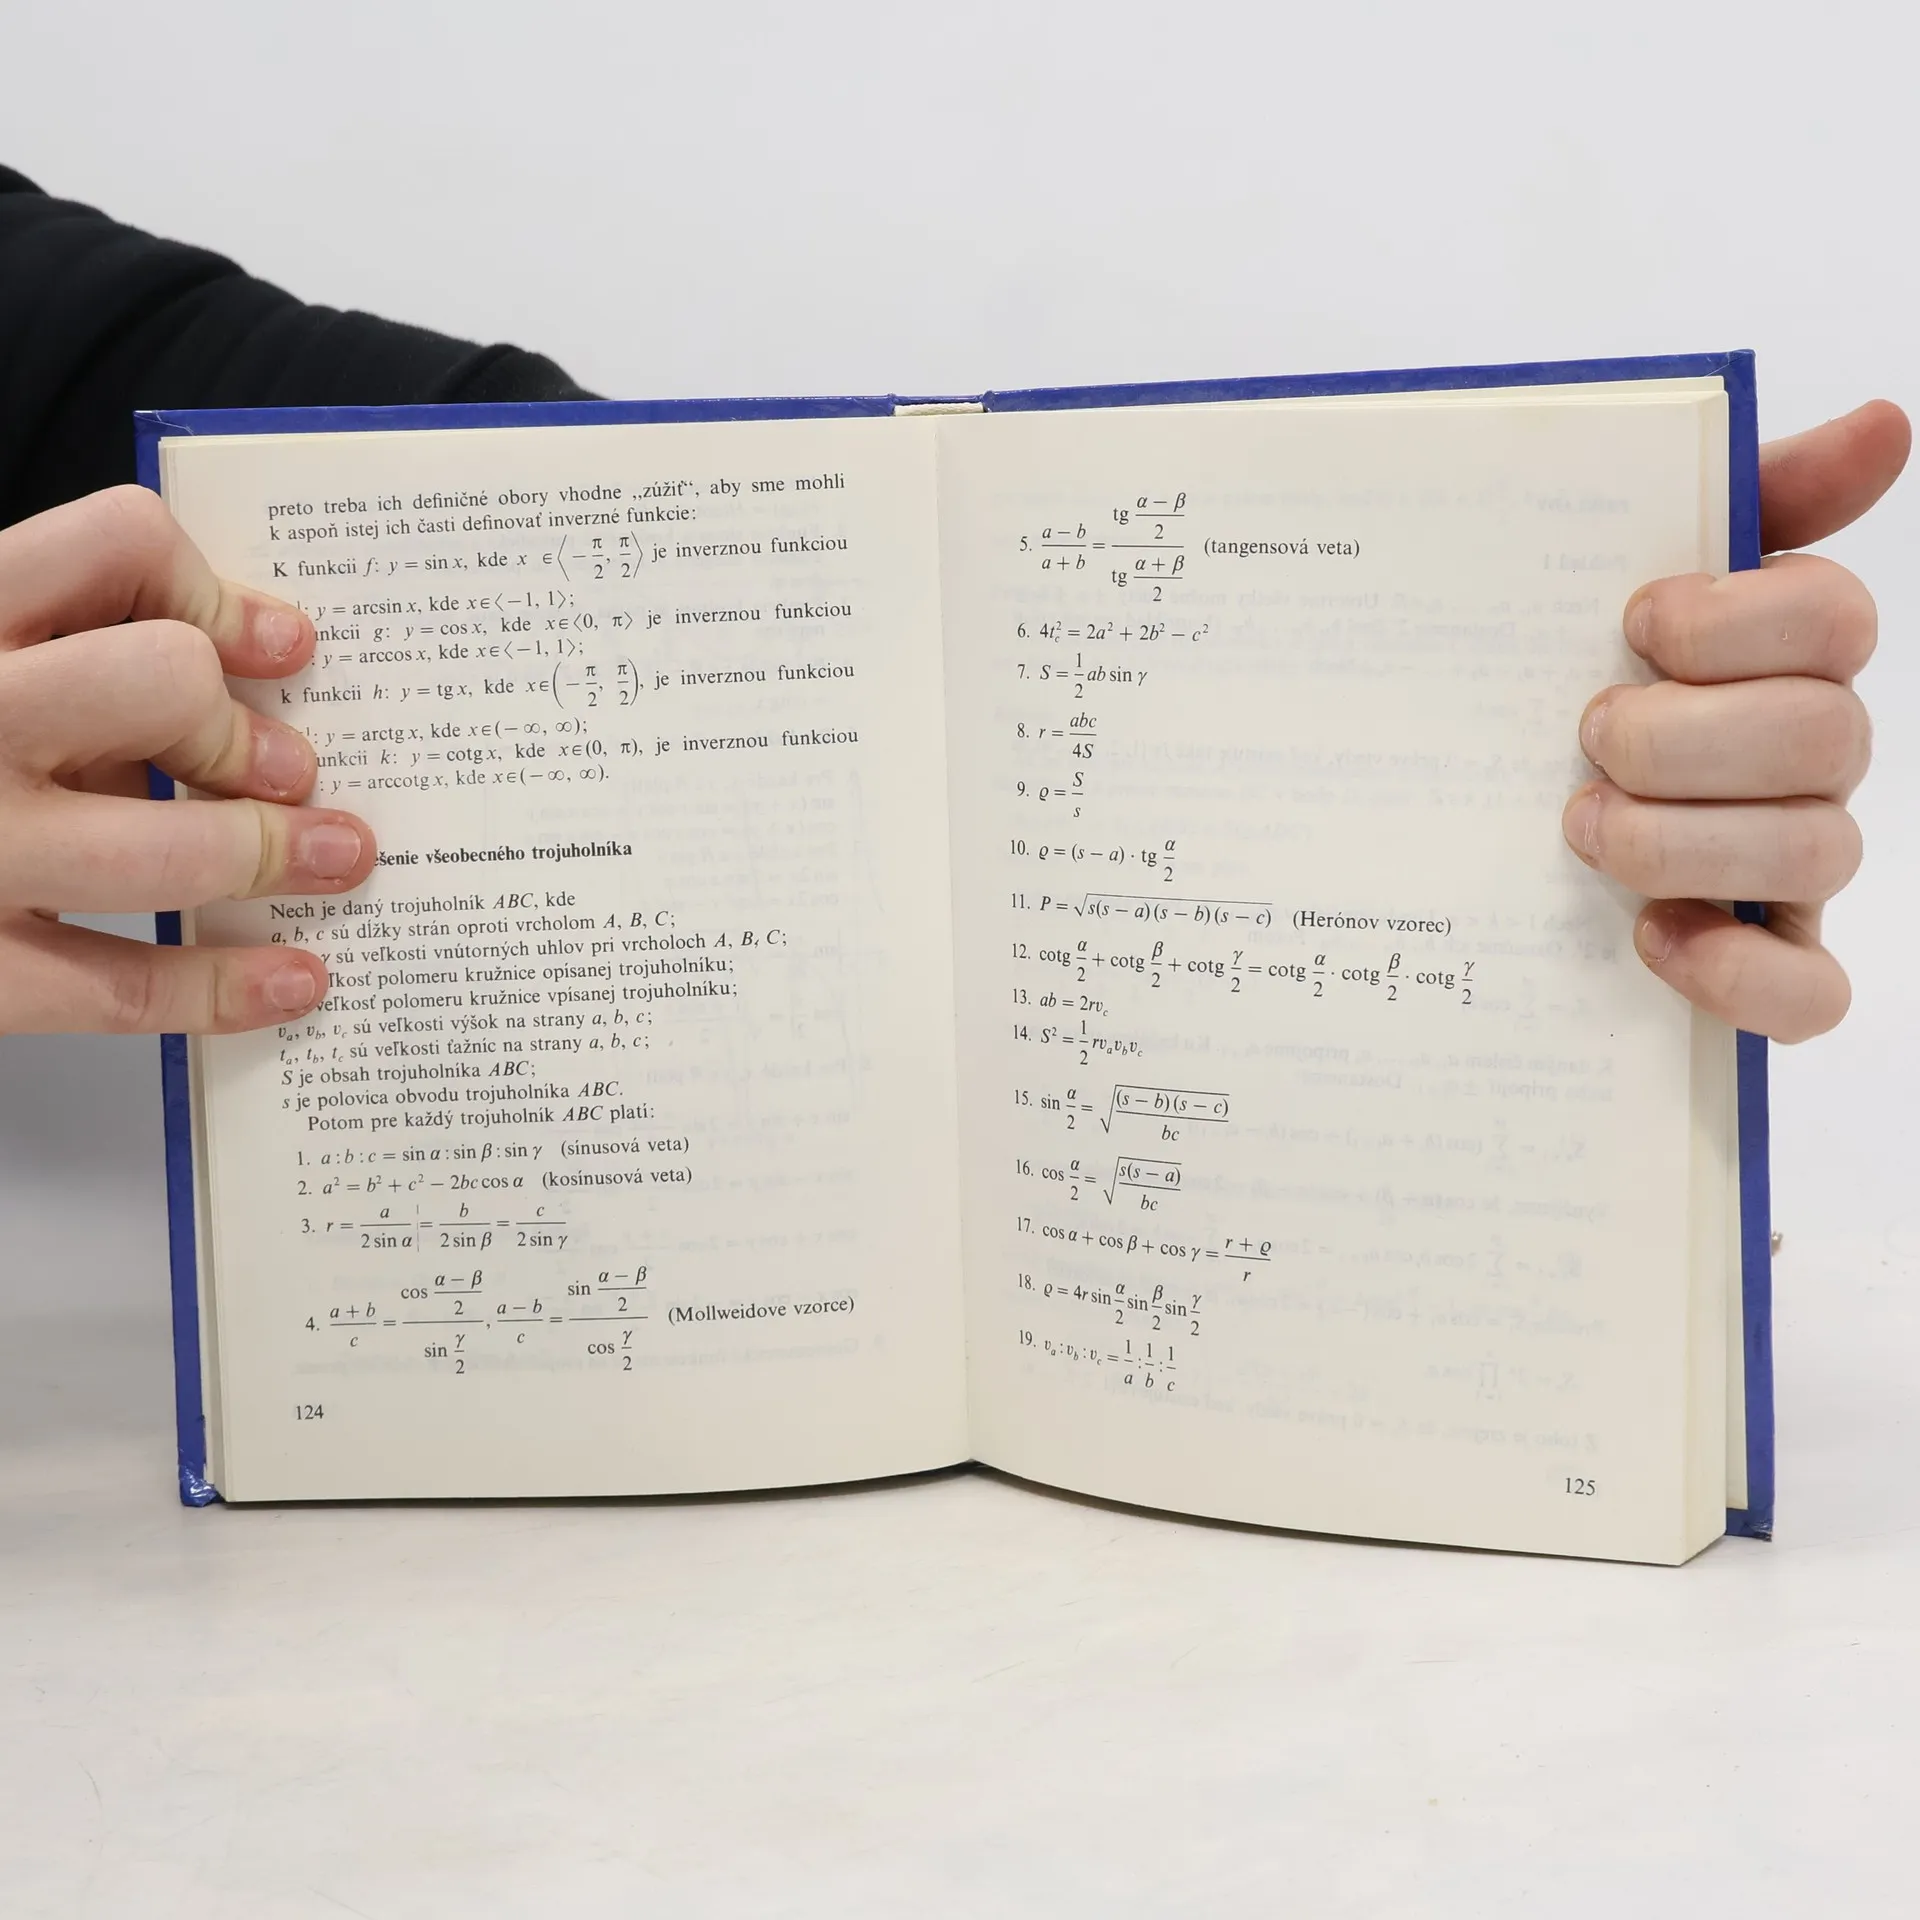 preto treba ich definičné obory vhodne „zúžiť“, aby sme mohli
k aspoň istej ich časti definovať inverzné funkcie:
K funkcii f: y = sin x, kde x ∈ ⟨−π/2, π/2⟩ je inverznou funkciou
: y = arcsin x, kde x∈⟨−1, 1⟩;
g: y = cos x, kde x∈⟨0, π⟩ je inverznou funkciou
: y = arccos x, kde x∈⟨−1, 1⟩;
k funkcii h: y = tg x, kde x∈(−π/2, π/2), je inverznou funkciou
: y = arctg x, kde x∈(−∞, ∞);
k: y = cotg x, kde x∈(0, π), je inverznou funkciou
: y = arccotg x, kde x∈(−∞, ∞).
všeobecného trojuholníka
Nech je daný trojuholník ABC, kde
a, b, c sú dĺžky strán oproti vrcholom A, B, C;
γ sú veľkosti vnútorných uhlov pri vrcholoch A, B, C;
polomeru kružnice opísanej trojuholníku;
veľkosť polomeru kružnice vpísanej trojuholníku;
v_a, v_b, v_c sú veľkosti výšok na strany a, b, c;
t_a, t_b, t_c sú veľkosti ťažníc na strany a, b, c;
S je obsah trojuholníka ABC;
s je polovica obvodu trojuholníka ABC.
Potom pre každý trojuholník ABC platí:
1. a : b : c = sin α : sin β : sin γ (sínusová veta)
2. a² = b² + c² − 2bc cos α (kosínusová veta)
3. r = a/(2 sin α) = b/(2 sin β) = c/(2 sin γ)
4. (a + b)/c = (cos (α − β)/2)/(sin γ/2), (a − b)/c = (sin (α − β)/2)/(cos γ/2) (Mollweidove vzorce)
124
5. (a − b)/(a + b) = (tg (α − β)/2)/(tg (α + β)/2) (tangensová veta)
6. 4t_c² = 2a² + 2b² − c²
7. S = 1/2 ab sin γ
8. r = abc/4S
9. ϱ = S/s
10. ϱ = (s − a) · tg α/2
11. P = √(s(s − a)(s − b)(s − c)) (Herónov vzorec)
12. cotg α/2 + cotg β/2 + cotg γ/2 = cotg α/2 · cotg β/2 · cotg γ/2
13. ab = 2rv_c
14. S² = 1/2 rv_a v_b v_c
15. sin α/2 = √((s − b)(s − c)/bc)
16. cos α/2 = √(s(s − a)/bc)
17. cos α + cos β + cos γ = (r + ϱ)/r
18. ϱ = 4r sin α/2 sin β/2 sin γ/2
19. v_a : v_b : v_c = 1/a : 1/b : 1/c
125